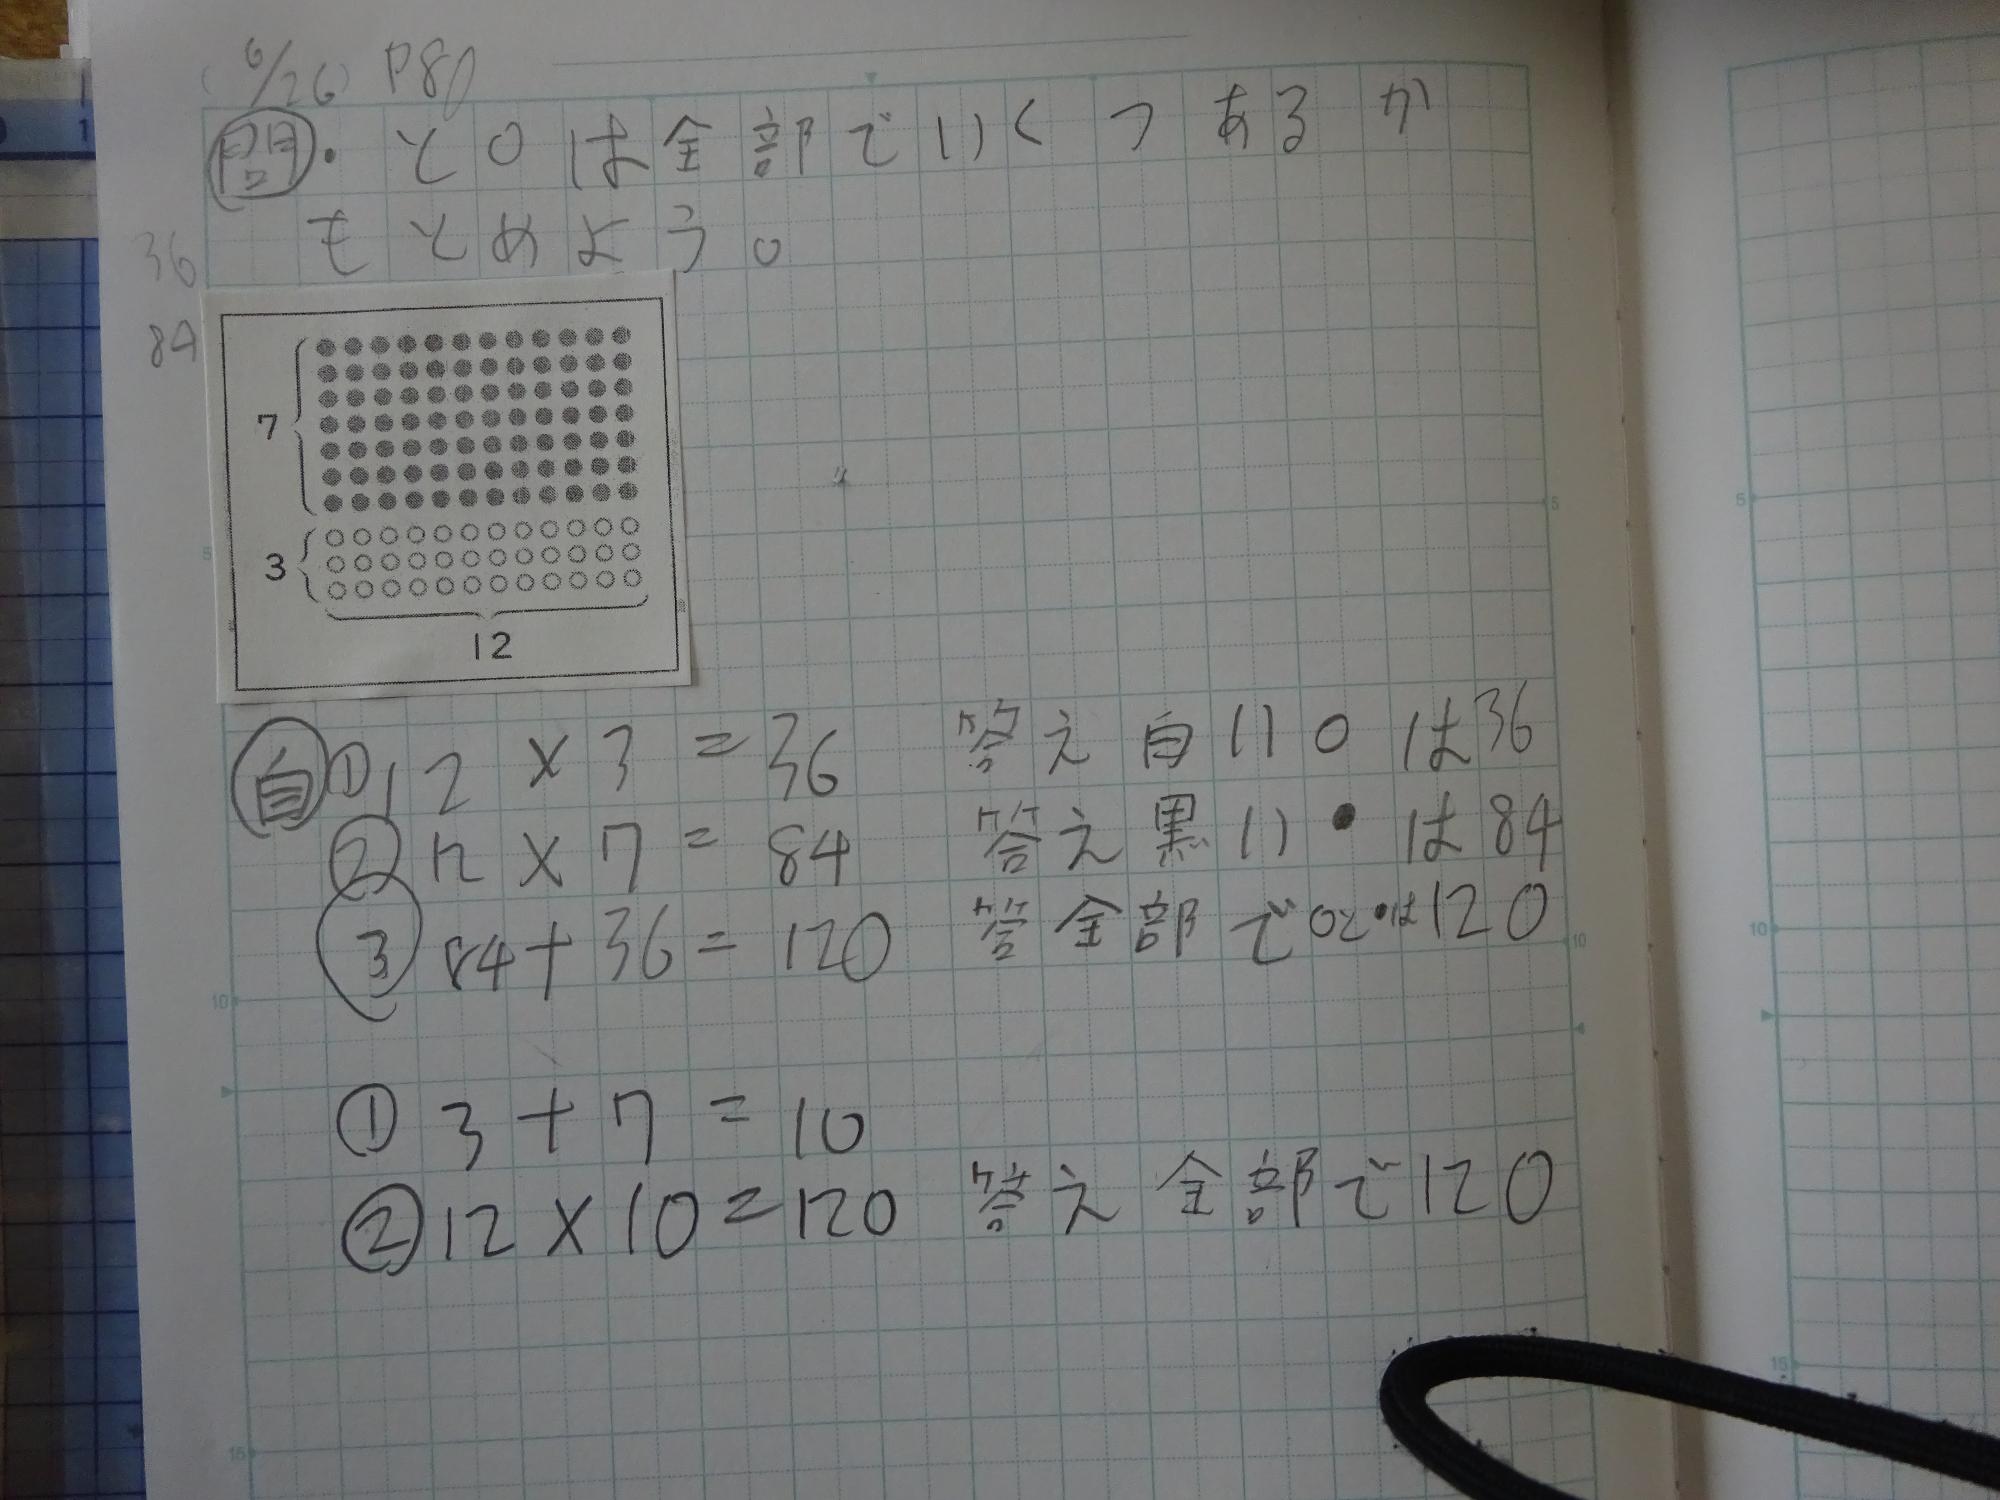 (6/26) P80
問 ・と○は全部でいくつあるか
もとめよう。
36
84
7
3
12
自 ① 12×3=36 答え 白い○は36
② 12×7=84 答え 黒い●は84
③ 84+36=120 答 全部で○と・は120
① 3+7=10
② 12×10=120 答え 全部で120
5
10
15
5
10
5
10
15